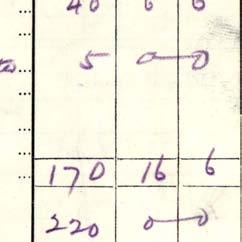 40 0 0
5 0—0
170 16 6
220 0—0